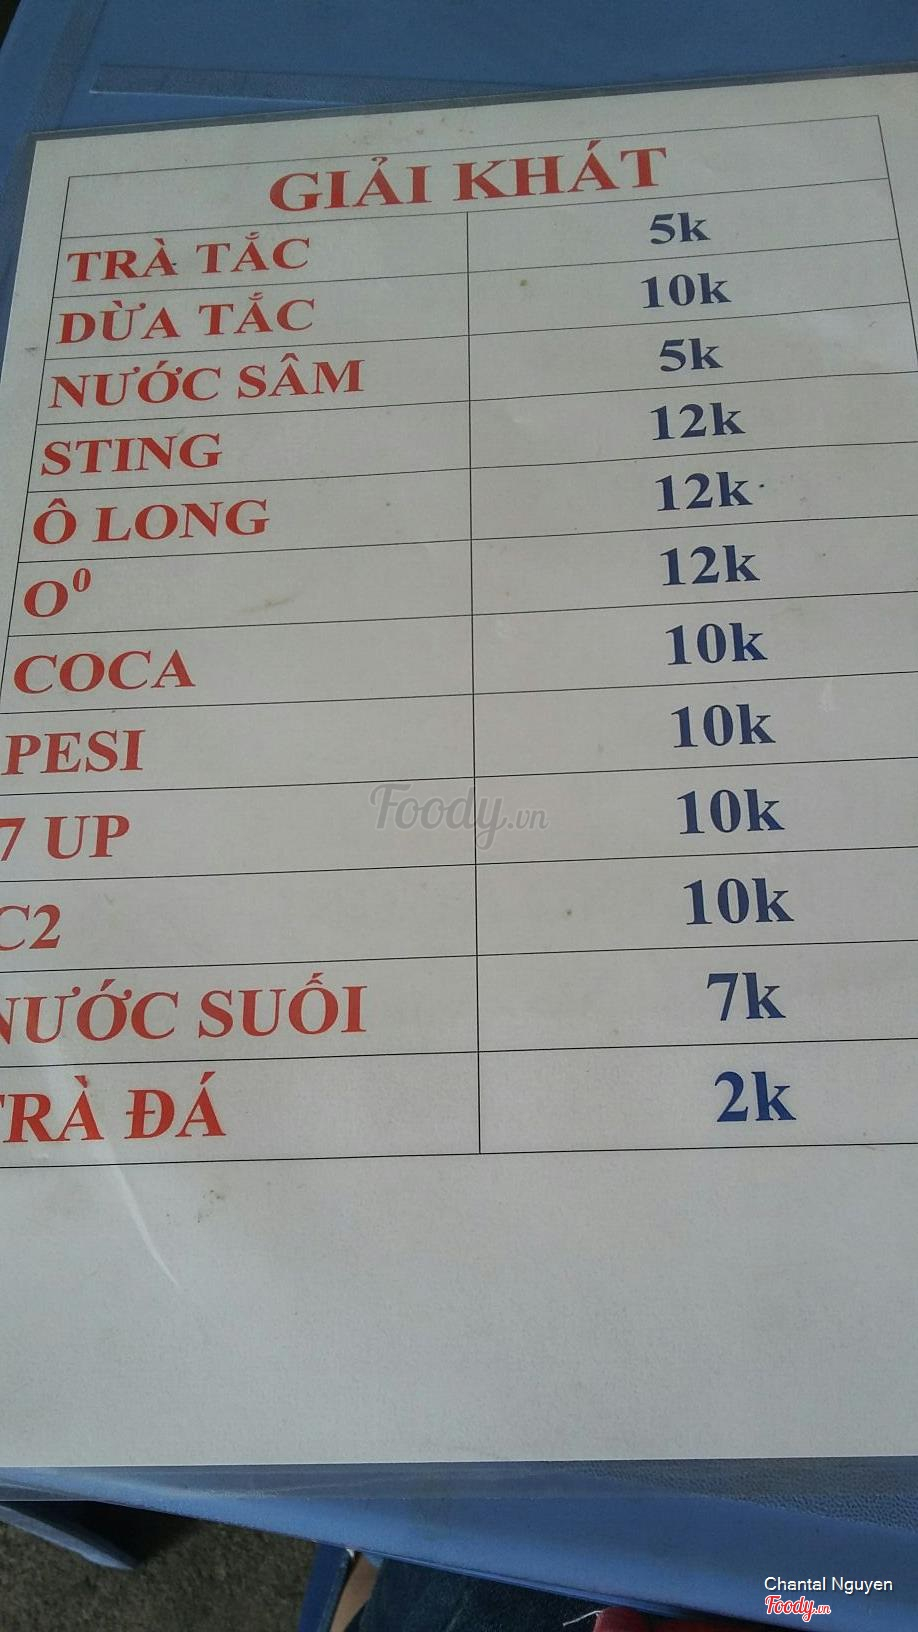 GIẢI KHÁT
TRÀ TẮC 5k
DỪA TẮC 10k
NƯỚC SÂM 5k
STING 12k
Ô LONG 12k
O⁰ 12k
COCA 10k
PESI 10k
7 UP 10k
C2 10k
NƯỚC SUỐI 7k
TRÀ ĐÁ 2k
Foody.vn
Chantal Nguyen
Foody.vn